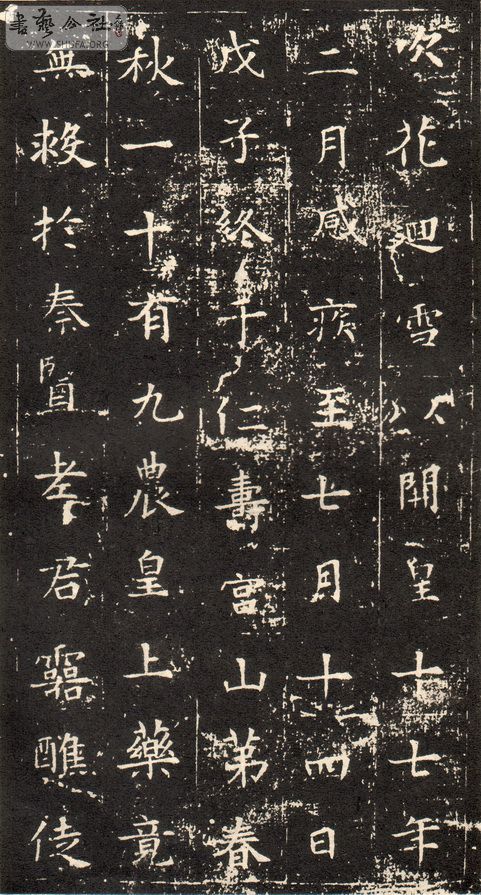 吹花迴雪以開皇十七年
二月感疾至七月十四日
戊子終于仁壽宮山第春
秋一十有九農皇上藥竟
無救於秦醫老君靈醮徒
書藝公社
WWW.SHUFA.ORG